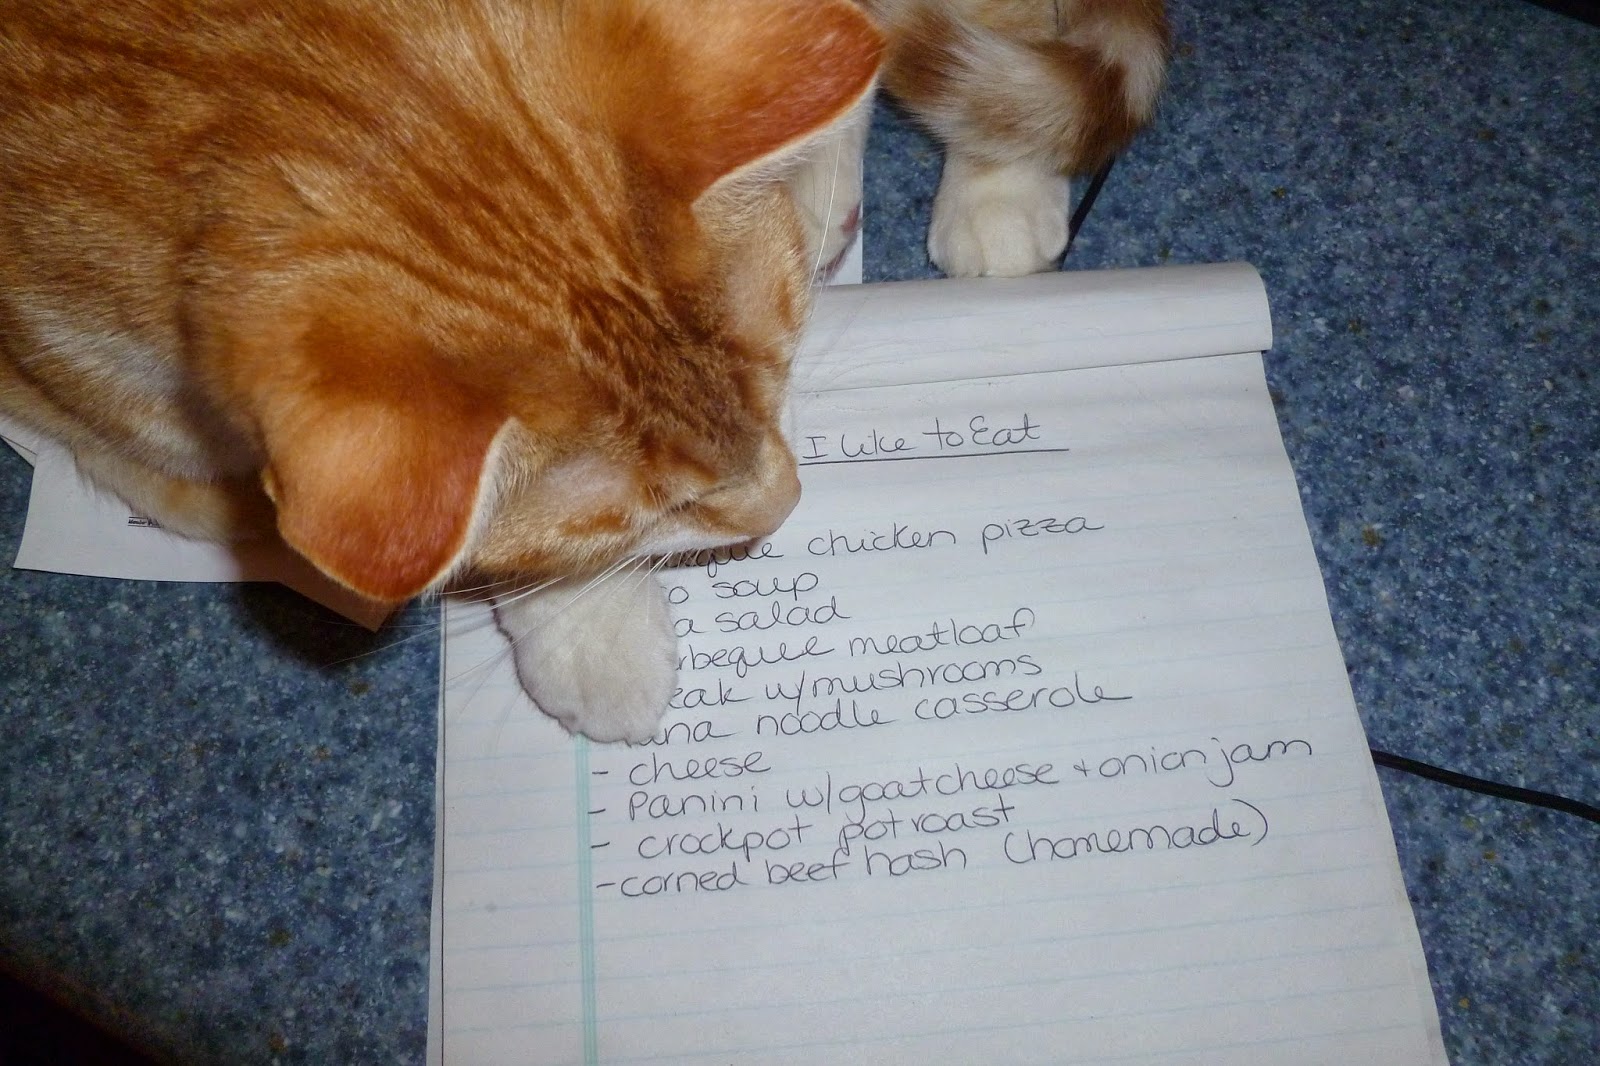 I Like to Eat
chicken pizza
soup
salad
meatloaf
w/mushrooms
noodle casserole
- cheese
- Panini w/goat cheese + onion jam
- crockpot pot roast
- corned beef hash (homemade)